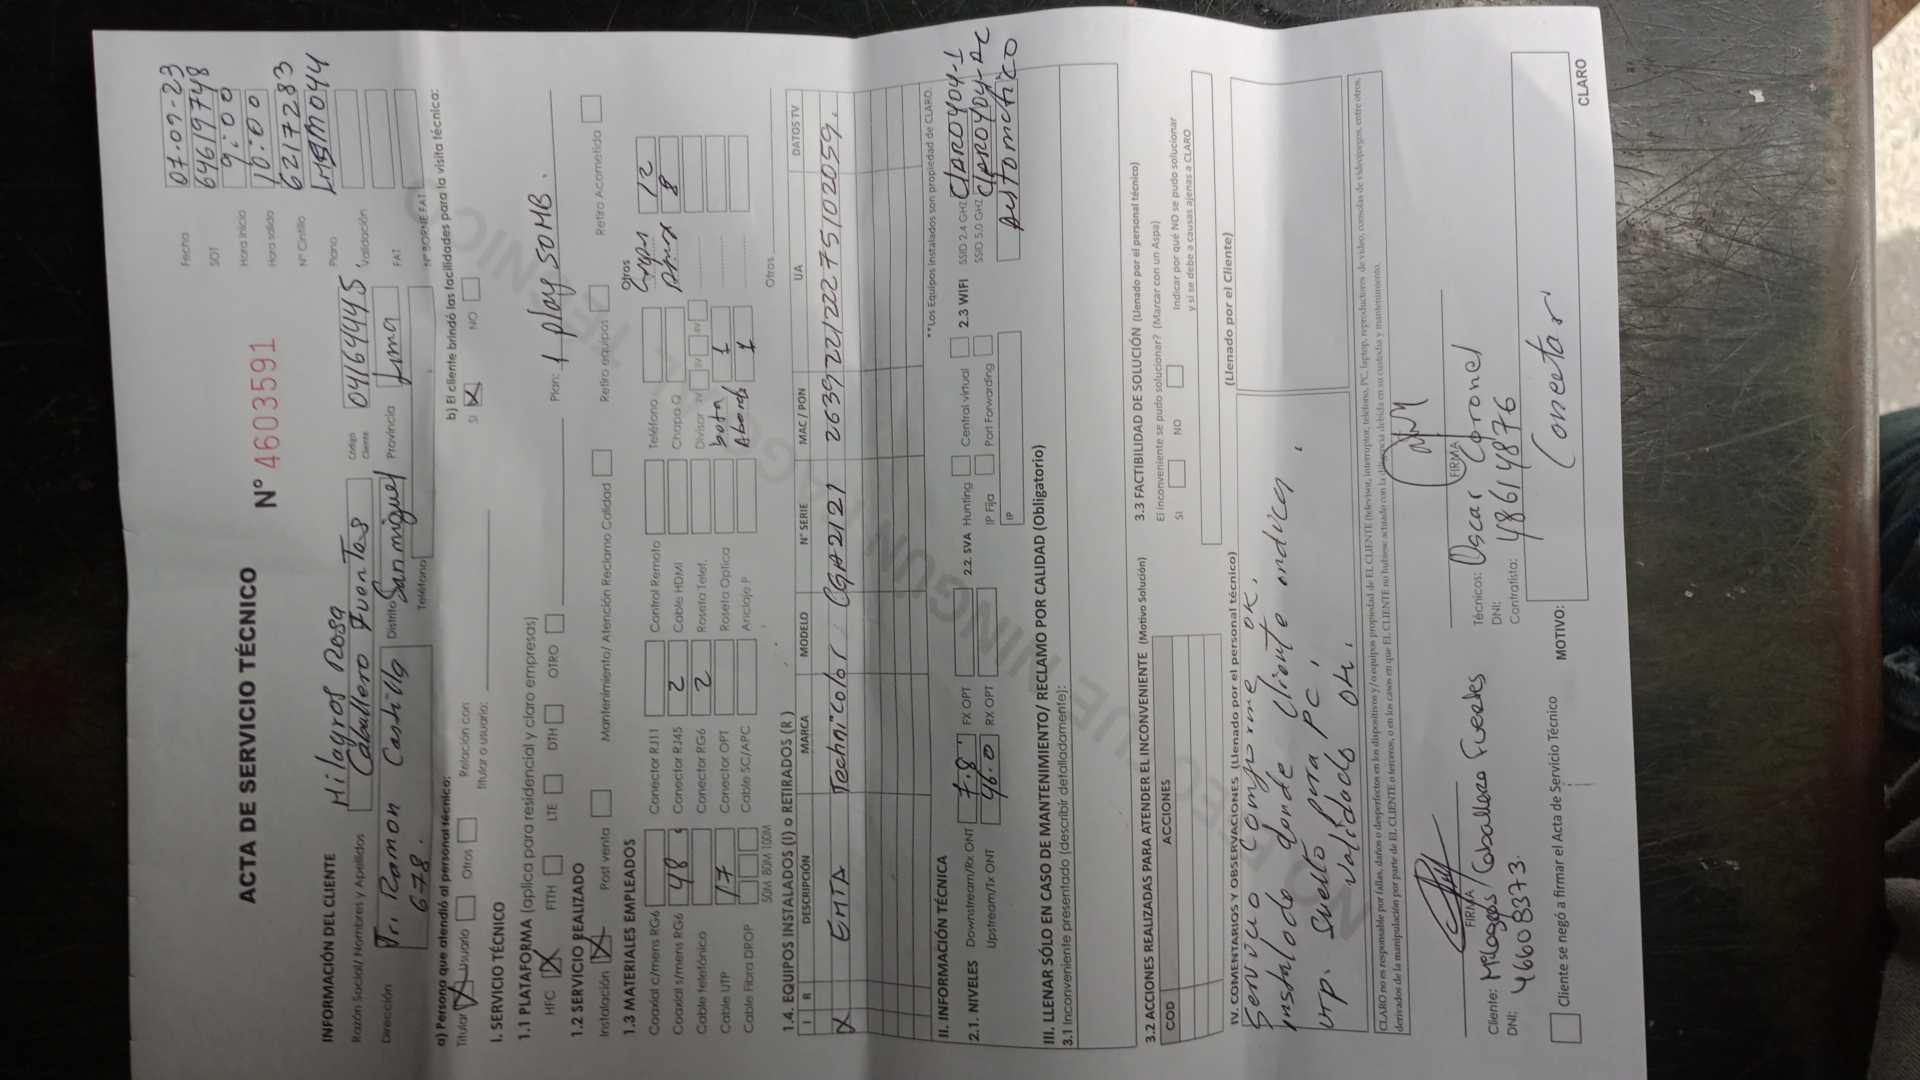 ACTA DE SERVICIO TÉCNICO
N° 4603591
Fecha 07-09-23
SOT 64619748
Hora Inicio 9:00
Hora salida 10:00
N° Cintillo 6217283
Plano
Validación
FAT
N° BORNE FAT
INFORMACIÓN DEL CLIENTE
Milagros Rosa
Razón Social/ Nombres y Apellidos Caballero Fuentes
Código Cliente 04164445
Dirección Jr. Ramon Castilla 678.
Distrito San miguel
Provincia Lima
Teléfono
a) Persona que atendió al personal técnico:
Titular X Usuario Otros
Relación con titular o usuario:
b) El cliente brindó las facilidades para la visita técnica:
SI X NO
I. SERVICIO TÉCNICO
1.1 PLATAFORMA (aplica para residencial y claro empresas)
HFC X FTTH LTE DTH OTRO
Plan: 1 play 50MB.
1.2 SERVICIO REALIZADO
Instalación X Post venta Mantenimiento/ Atención Reclamo Calidad Retiro equipos Retiro Acometida
1.3 MATERIALES EMPLEADOS
Otros
Coaxial c/mens RG6 Conector RJ11 Control Remoto Teléfono 12
Coaxial s/mens RG6 48 Conector RJ45 2 Cable HDMI Chapa Q 8
Cable telefónico Conector RG6 2 Roseta Telef. Divisor 2V 3V 4V
Cable UTP 17 Conector OPT Roseta Optica 1
Cable Fibra DROP 50M 80M 100M Cable SC/APC Anclaje P 1
Otros
1.4. EQUIPOS INSTALADOS (I) o RETIRADOS (R )
I R DESCRIPCIÓN MARCA MODELO N° SERIE MAC / PON UA DATOS TV
X EMTA Technicolor CGA2121
**Los Equipos instalados son propiedad de CLARO.
II. INFORMACIÓN TÉCNICA
2.1. NIVELES Downstream/Rx ONT 7.8 FX OPT
Upstream/Tx ONT 46.0 RX OPT
2.2. SVA Hunting Central virtual
IP Fija Port Forwarding
IP
2.3 WIFI SSID 2.4 GHZ
SSID 5.0 GHZ
Automatico
III. LLENAR SÓLO EN CASO DE MANTENIMIENTO/ RECLAMO POR CALIDAD (Obligatorio)
3.1 Inconveniente presentado (describir detalladamente):
3.2 ACCIONES REALIZADAS PARA ATENDER EL INCONVENIENTE (Motivo Solución)
COD ACCIONES
3.3 FACTIBILIDAD DE SOLUCIÓN (Llenado por el personal técnico)
El inconveniente se pudo solucionar? (Marcar con un Aspa)
SI NO
Indicar por qué NO se pudo solucionar
y si se debe a causas ajenas a CLARO
IV. COMENTARIOS Y OBSERVACIONES (Llenado por el personal técnico)
(Llenado por el Cliente)
Servicio conforme OK.
instalado donde cliente indica,
utp. suelto para PC,
validado OK.
CLARO no es responsable por fallas, daños o desperfectos en los dispositivos y/o equipos propiedad de EL CLIENTE (televisor, interruptor, teléfono, PC, laptop, reproductores de video, consolas de videojuegos, entre otros,
derivados de la manipulación por parte de EL CLIENTE o terceros, o en los casos en que EL CLIENTE no hubiese actuado con la diligencia debida en su custodia y mantenimiento.
FIRMA
Cliente: Milagros Caballero Fuentes
DNI: 46608373
FIRMA
Técnicos: Oscar Coronel
DNI: 48614876
Contratista: Conectar
Cliente se negó a firmar el Acta de Servicio Técnico
MOTIVO:
CLARO